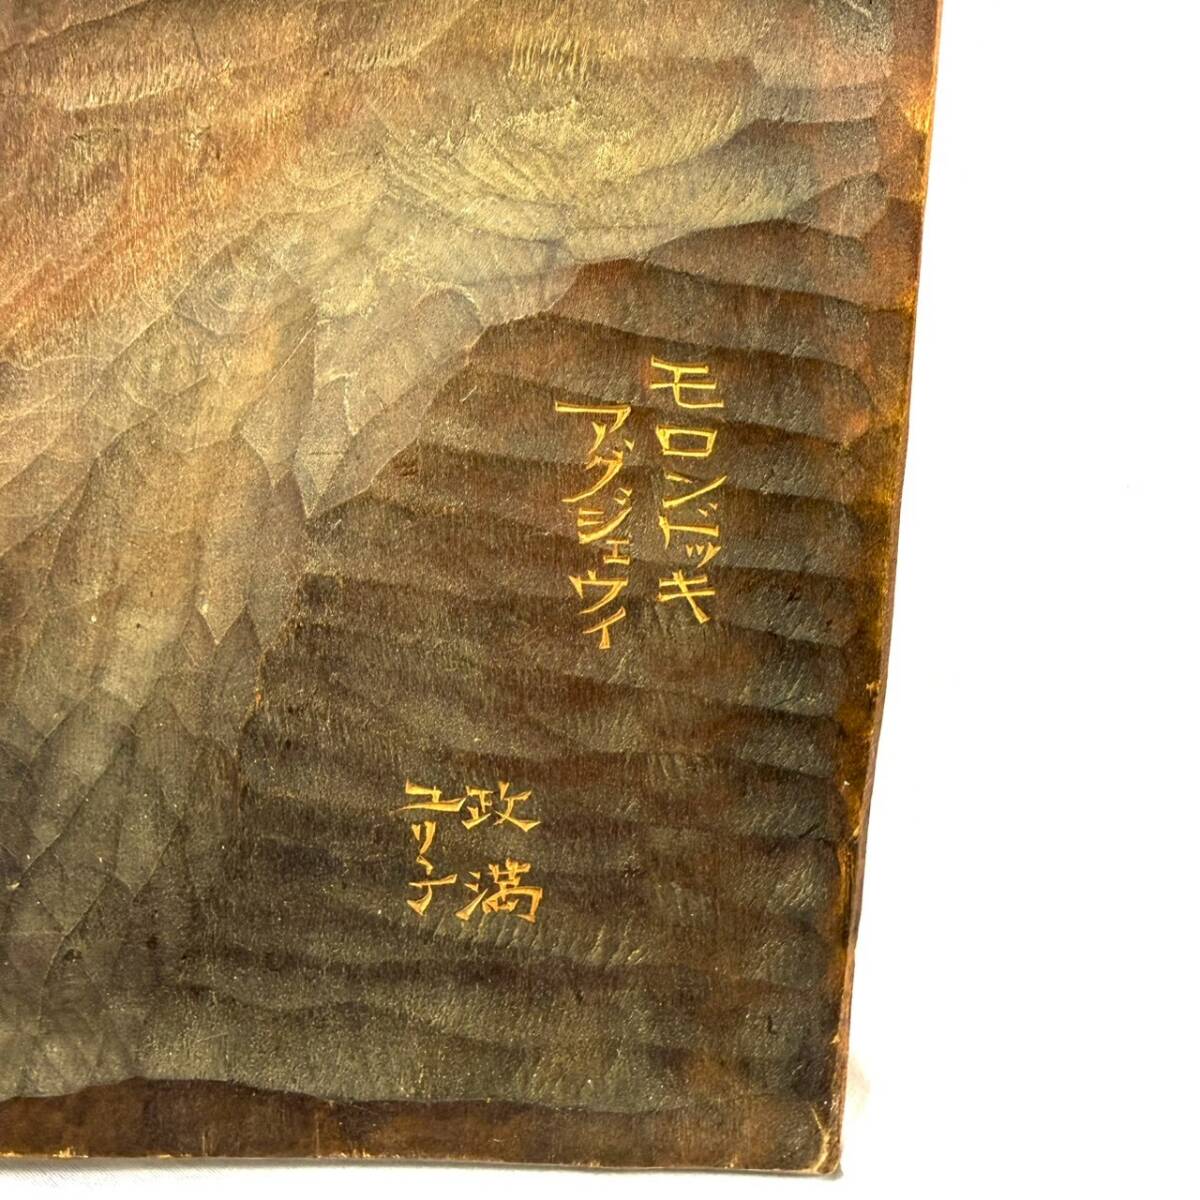 モロンドッキ
アグジェウィ
政満
ユリ子